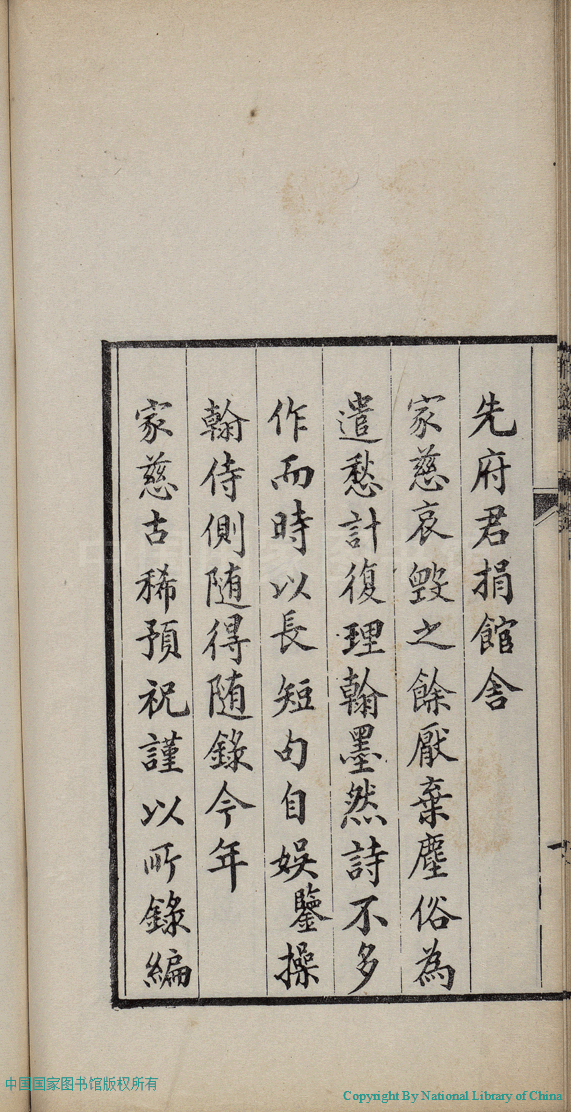 先府君捐館舍
家慈哀毀之餘厭棄塵俗為
遣愁計復理翰墨然詩不多
作而時以長短句自娛鑒操
翰侍側隨得隨錄今年
家慈古稀預祝謹以所錄編
中国国家图书馆版权所有
Copyright By National Library of China